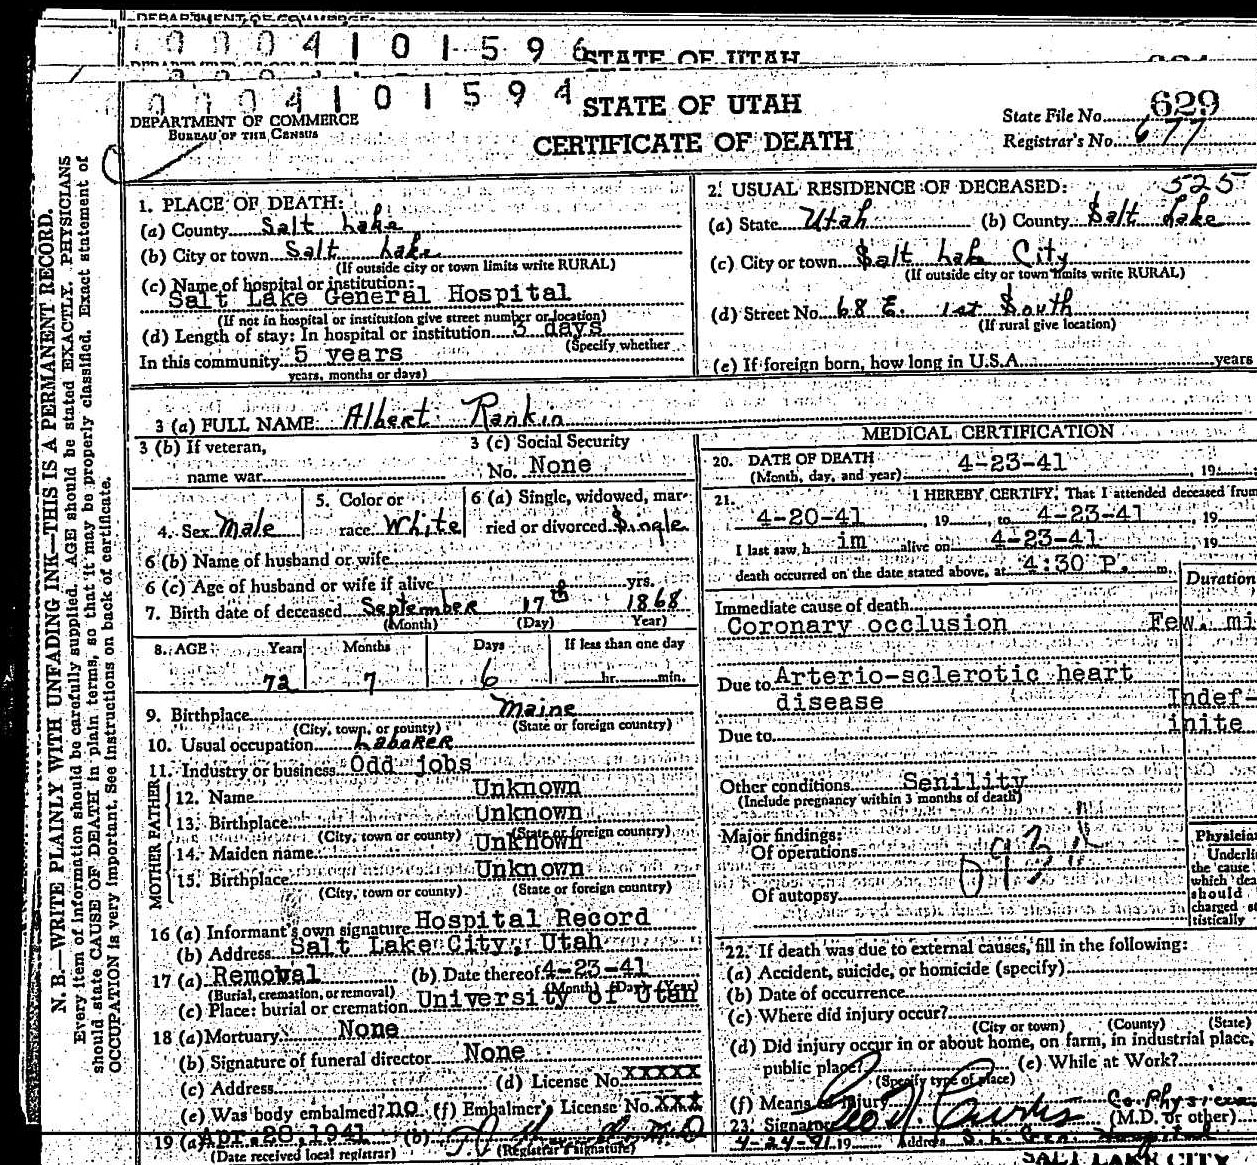 DEPARTMENT OF COMMERCE
0 0 0 4 1 0 1 5 9 6
STATE OF UTAH
0 0 0 4 1 0 1 5 9 4
STATE OF UTAH
CERTIFICATE OF DEATH
DEPARTMENT OF COMMERCE
BUREAU OF THE CENSUS
State File No. 629
Registrar's No. 677
N. B.—WRITE PLAINLY WITH UNFADING INK—THIS IS A PERMANENT RECORD.
Every item of information should be carefully supplied. AGE should be stated EXACTLY. PHYSICIANS
should state CAUSE OF DEATH in plain terms, so that it may be properly classified. Exact statement of
OCCUPATION is very important. See instructions on back of certificate.
1. PLACE OF DEATH:
(a) County Salt Lake
(b) City or town Salt Lake
(If outside city or town limits write RURAL)
(c) Name of hospital or institution:
Salt Lake General Hospital
(If not in hospital or institution give street number or location)
(d) Length of stay: In hospital or institution 3 days
(Specify whether
In this community 5 years
years, months or days)
2. USUAL RESIDENCE OF DECEASED: 525
(a) State Utah (b) County Salt Lake
(c) City or town Salt Lak City
(If outside city or town limits write RURAL)
(d) Street No. 68 E. 1st South
(If rural give location)
(e) If foreign born, how long in U.S.A. years
3 (a) FULL NAME Albert Rankin
3 (b) If veteran,
name war
3 (c) Social Security
No. None
4. Sex Male
5. Color or
race White
6 (a) Single, widowed, mar-
ried or divorced Single
6 (b) Name of husband or wife
6 (c) Age of husband or wife if alive yrs.
7. Birth date of deceased September 17th 1868
(Month) (Day) Year)
8. AGE: Years Months Days If less than one day
72 7 6 hr. min.
9. Birthplace Maine
(City, town, or county) (State or foreign country)
10. Usual occupation LaboRER
11. Industry or business Odd jobs
FATHER
12. Name Unknown
13. Birthplace Unknown
(City, town or county) (State or foreign country)
MOTHER
14. Maiden name Unknown
15. Birthplace Unknown
(City, town or county) (State or foreign country)
16 (a) Informant's own signature Hospital Record
(b) Address Salt Lake City, Utah
17 (a) Removal (b) Date thereof 4-23-41
(Burial, cremation, or removal) (Month) (Day) (Year)
(c) Place: burial or cremation University of Utah
18 (a) Mortuary None
(b) Signature of funeral director None
(c) Address (d) License No. XXXXX
(e) Was body embalmed? no (f) Embalmer's License No. XXX
19 (a) Apr. 28, 1941 (b)
(Date received local registrar) (Registrar's signature)
MEDICAL CERTIFICATION
20. DATE OF DEATH
(Month, day, and year) 4-23-41, 19
21. I HEREBY CERTIFY, That I attended deceased from
4-20-41, 19, to 4-23-41, 19
I last saw h im alive on 4-23-41, 19
death occurred on the date stated above, at 4:30 P. m.
Duration
Immediate cause of death
Coronary occlusion Few mi
Due to Arterio-sclerotic heart
disease Indef-
inite
Due to
Other conditions Senility
(Include pregnancy within 3 months of death)
Major findings:
Of operations
Of autopsy
Physician
Underli
the cause
which dea
should
charged st
tistically
22. If death was due to external causes, fill in the following:
(a) Accident, suicide, or homicide (specify)
(b) Date of occurrence
(c) Where did injury occur?
(City or town) (County) (State)
(d) Did injury occur in or about home, on farm, in industrial place,
public place? (e) While at Work?
(Specify type of place)
(f) Means of injury
23. Signature Geo N. Curtis Co. Physician
(M.D. or other)
4-24-41 19 Address S. L. Gen. Hospital
SALT LAKE CITY